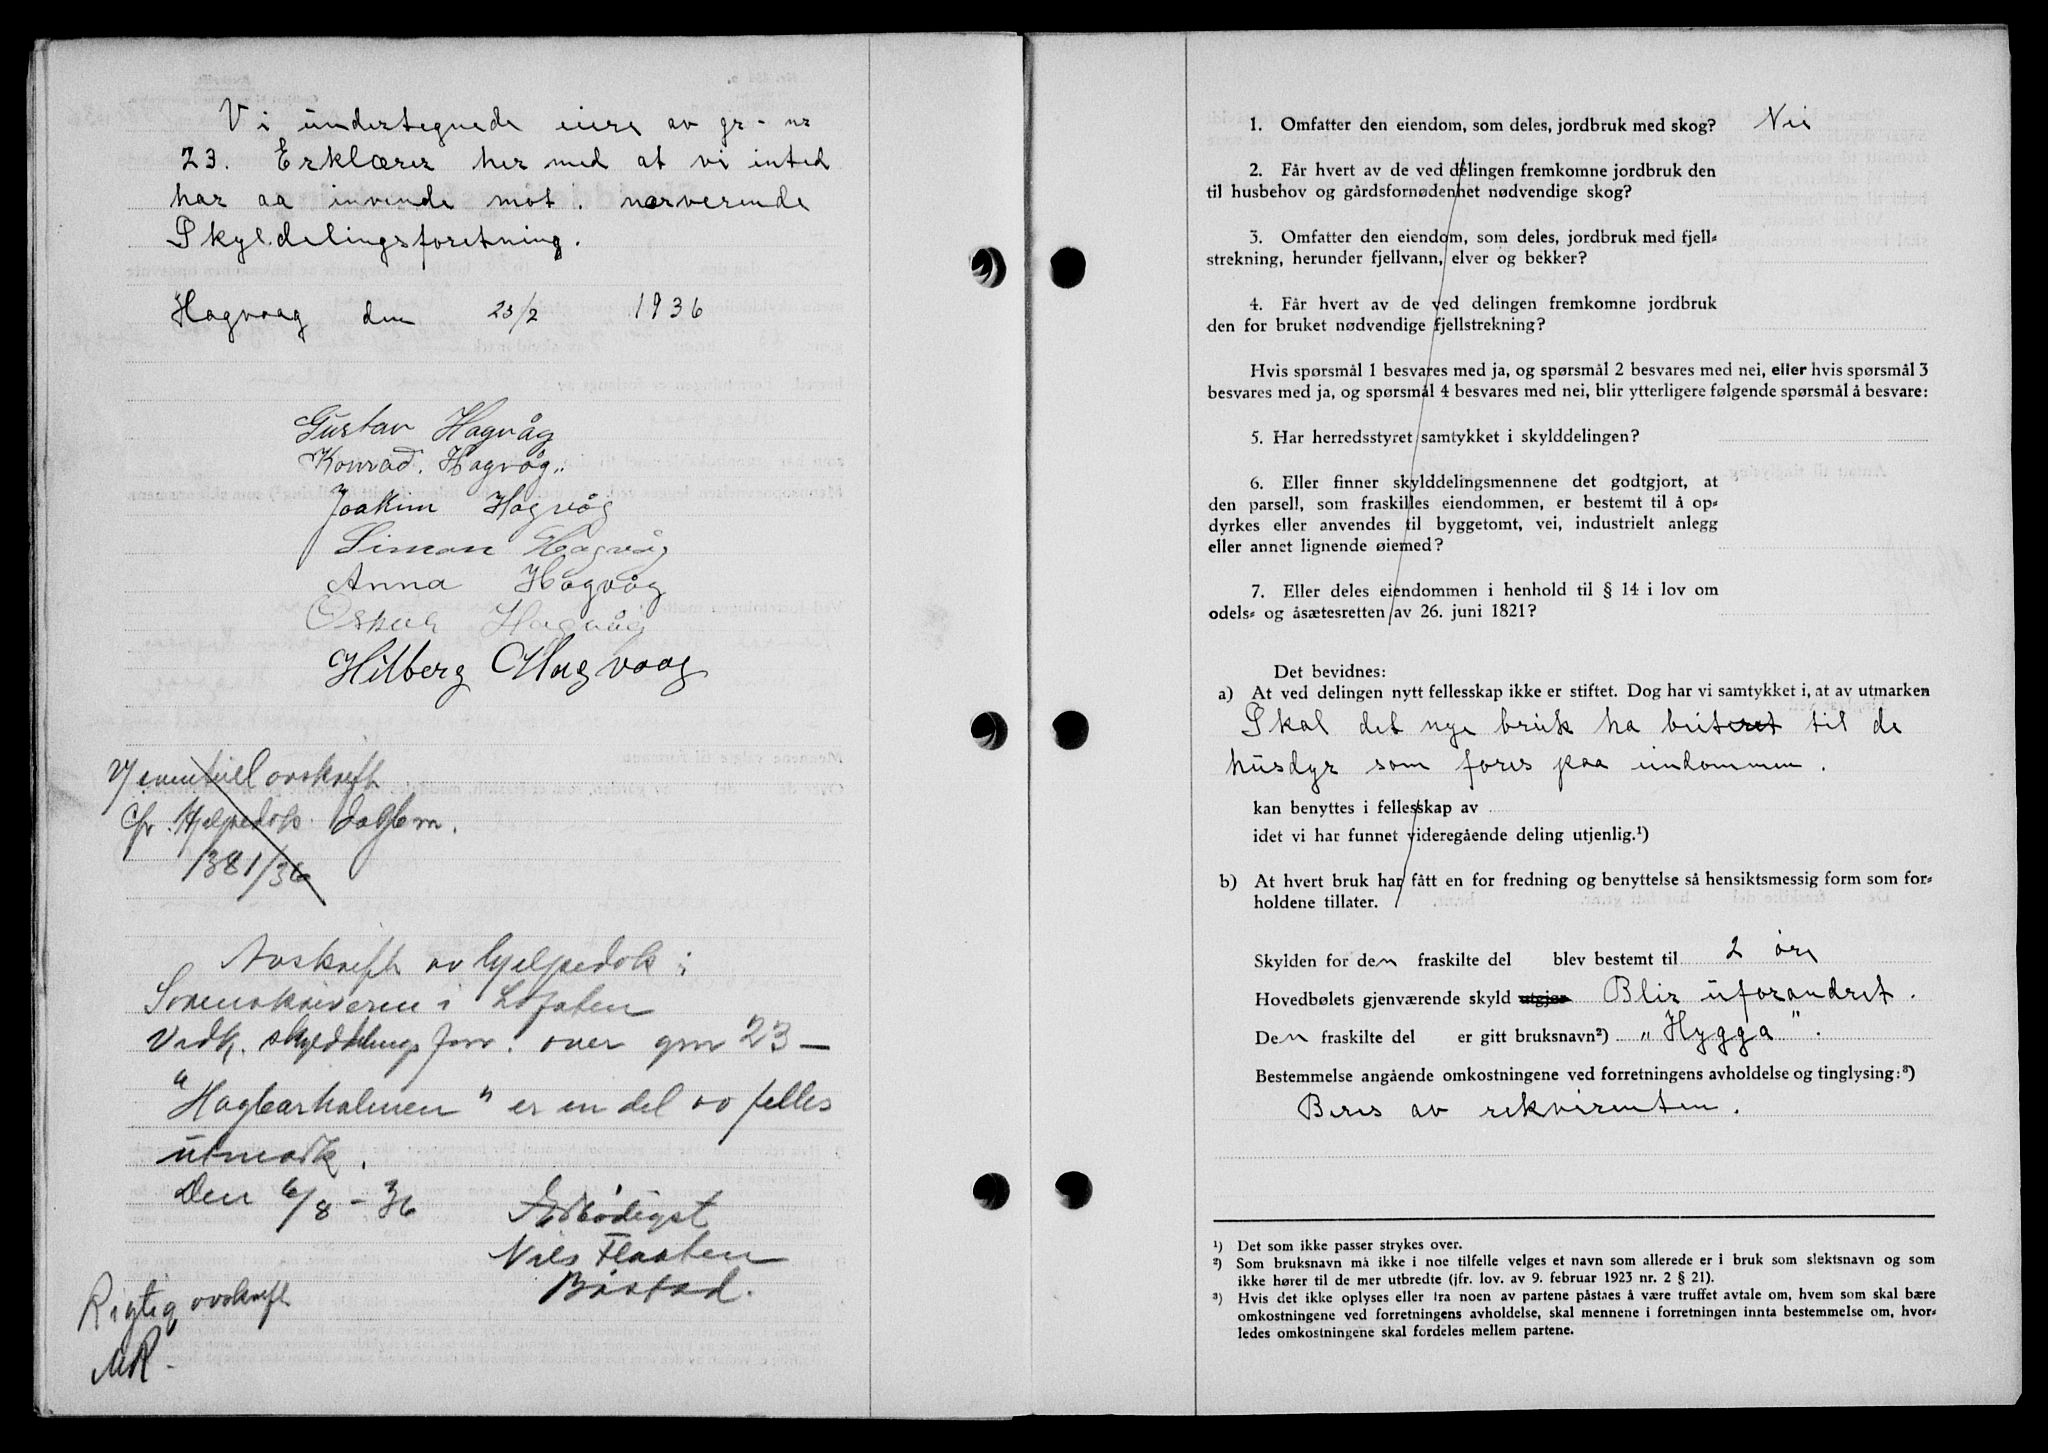 Vi undertegnede eiere av gr-nr
23. Erklærer her med at vi inted
har aa invende mot. nærverende
Skyldelingsforetning.
Hagvaag den 23/2 1936
Gustav Hagvåg
Konrad. Hagvåg.
Joakim Hagvåg
Simon Hagvåg
Anna Hagvåg
Oskar Hagvåg
Hilberg Hagvaag
V/ eventuell avskrift
cfr. Hjelpedok. dagbnr.
1381/36
Avskrift av hjelpedok:
Sorenskriveren i Lofoten
Vedk. skylddelingsforr. over gnr 23 —
"Hagbarholmen" er en del av felles
utmark.
Den 6/8 - 36
Ærbødigst
Nils Flaaten
Bøstad.
Rigtig avskrift
MR-
1. Omfatter den eiendom, som deles, jordbruk med skog? Nei
2. Får hvert av de ved delingen fremkomne jordbruk den
til husbehov og gårdsfornødenhet nødvendige skog?
3. Omfatter den eiendom, som deles, jordbruk med fjell=
strekning, herunder fjellvann, elver og bekker?
4. Får hvert av de ved delingen fremkomne jordbruk
den for bruket nødvendige fjellstrekning?
Hvis spørsmål 1 besvares med ja, og spørsmål 2 besvares med nei, eller hvis spørsmål 3
besvares med ja, og spørsmål 4 besvares med nei, blir ytterligere følgende spørsmål å besvare:
5. Har herredsstyret samtykket i skylddelingen?
6. Eller finner skylddelingsmennene det godtgjort, at
den parsell, som fraskilles eiendommen, er bestemt til å op=
dyrkes eller anvendes til byggetomt, vei, industrielt anlegg
eller annet lignende øiemed?
7. Eller deles eiendommen i henhold til § 14 i lov om
odels= og åsætesretten av 26. juni 1821?
Det bevidnes:
a) At ved delingen nytt fellesskap ikke er stiftet. Dog har vi samtykket i, at av utmarken
Skal det nye bruk ha beiteret til de
husdyr som fores paa eindommen.
kan benyttes i fellesskap av
idet vi har funnet videregående deling utjenlig.¹)
b) At hvert bruk har fått en for fredning og benyttelse så hensiktsmessig form som for=
holdene tillater.
Skylden for den fraskilte del blev bestemt til 2 øre
Hovedbølets gjenværende skyld utgjør Blir uforandret.
Den fraskilte del er gitt bruksnavn²) „Hygga".
Bestemmelse angående omkostningene ved forretningens avholdelse og tinglysing:³)
Beres av rekvirenten.
¹) Det som ikke passer strykes over.
²) Som bruksnavn må ikke i noe tilfelle velges et navn som allerede er i bruk som slektsnavn og som
ikke hører til de mer utbredte (jfr. lov. av 9. februar 1923 nr. 2 § 21).
³) Hvis det ikke oplyses eller fra noen av partene påstaes å være truffet avtale om, hvem som skal bære
omkostningene ved forretningens avholdelse, skal mennene i forretningen innta bestemmelse om, hvor=
ledes omkostningene skal fordeles mellem partene.